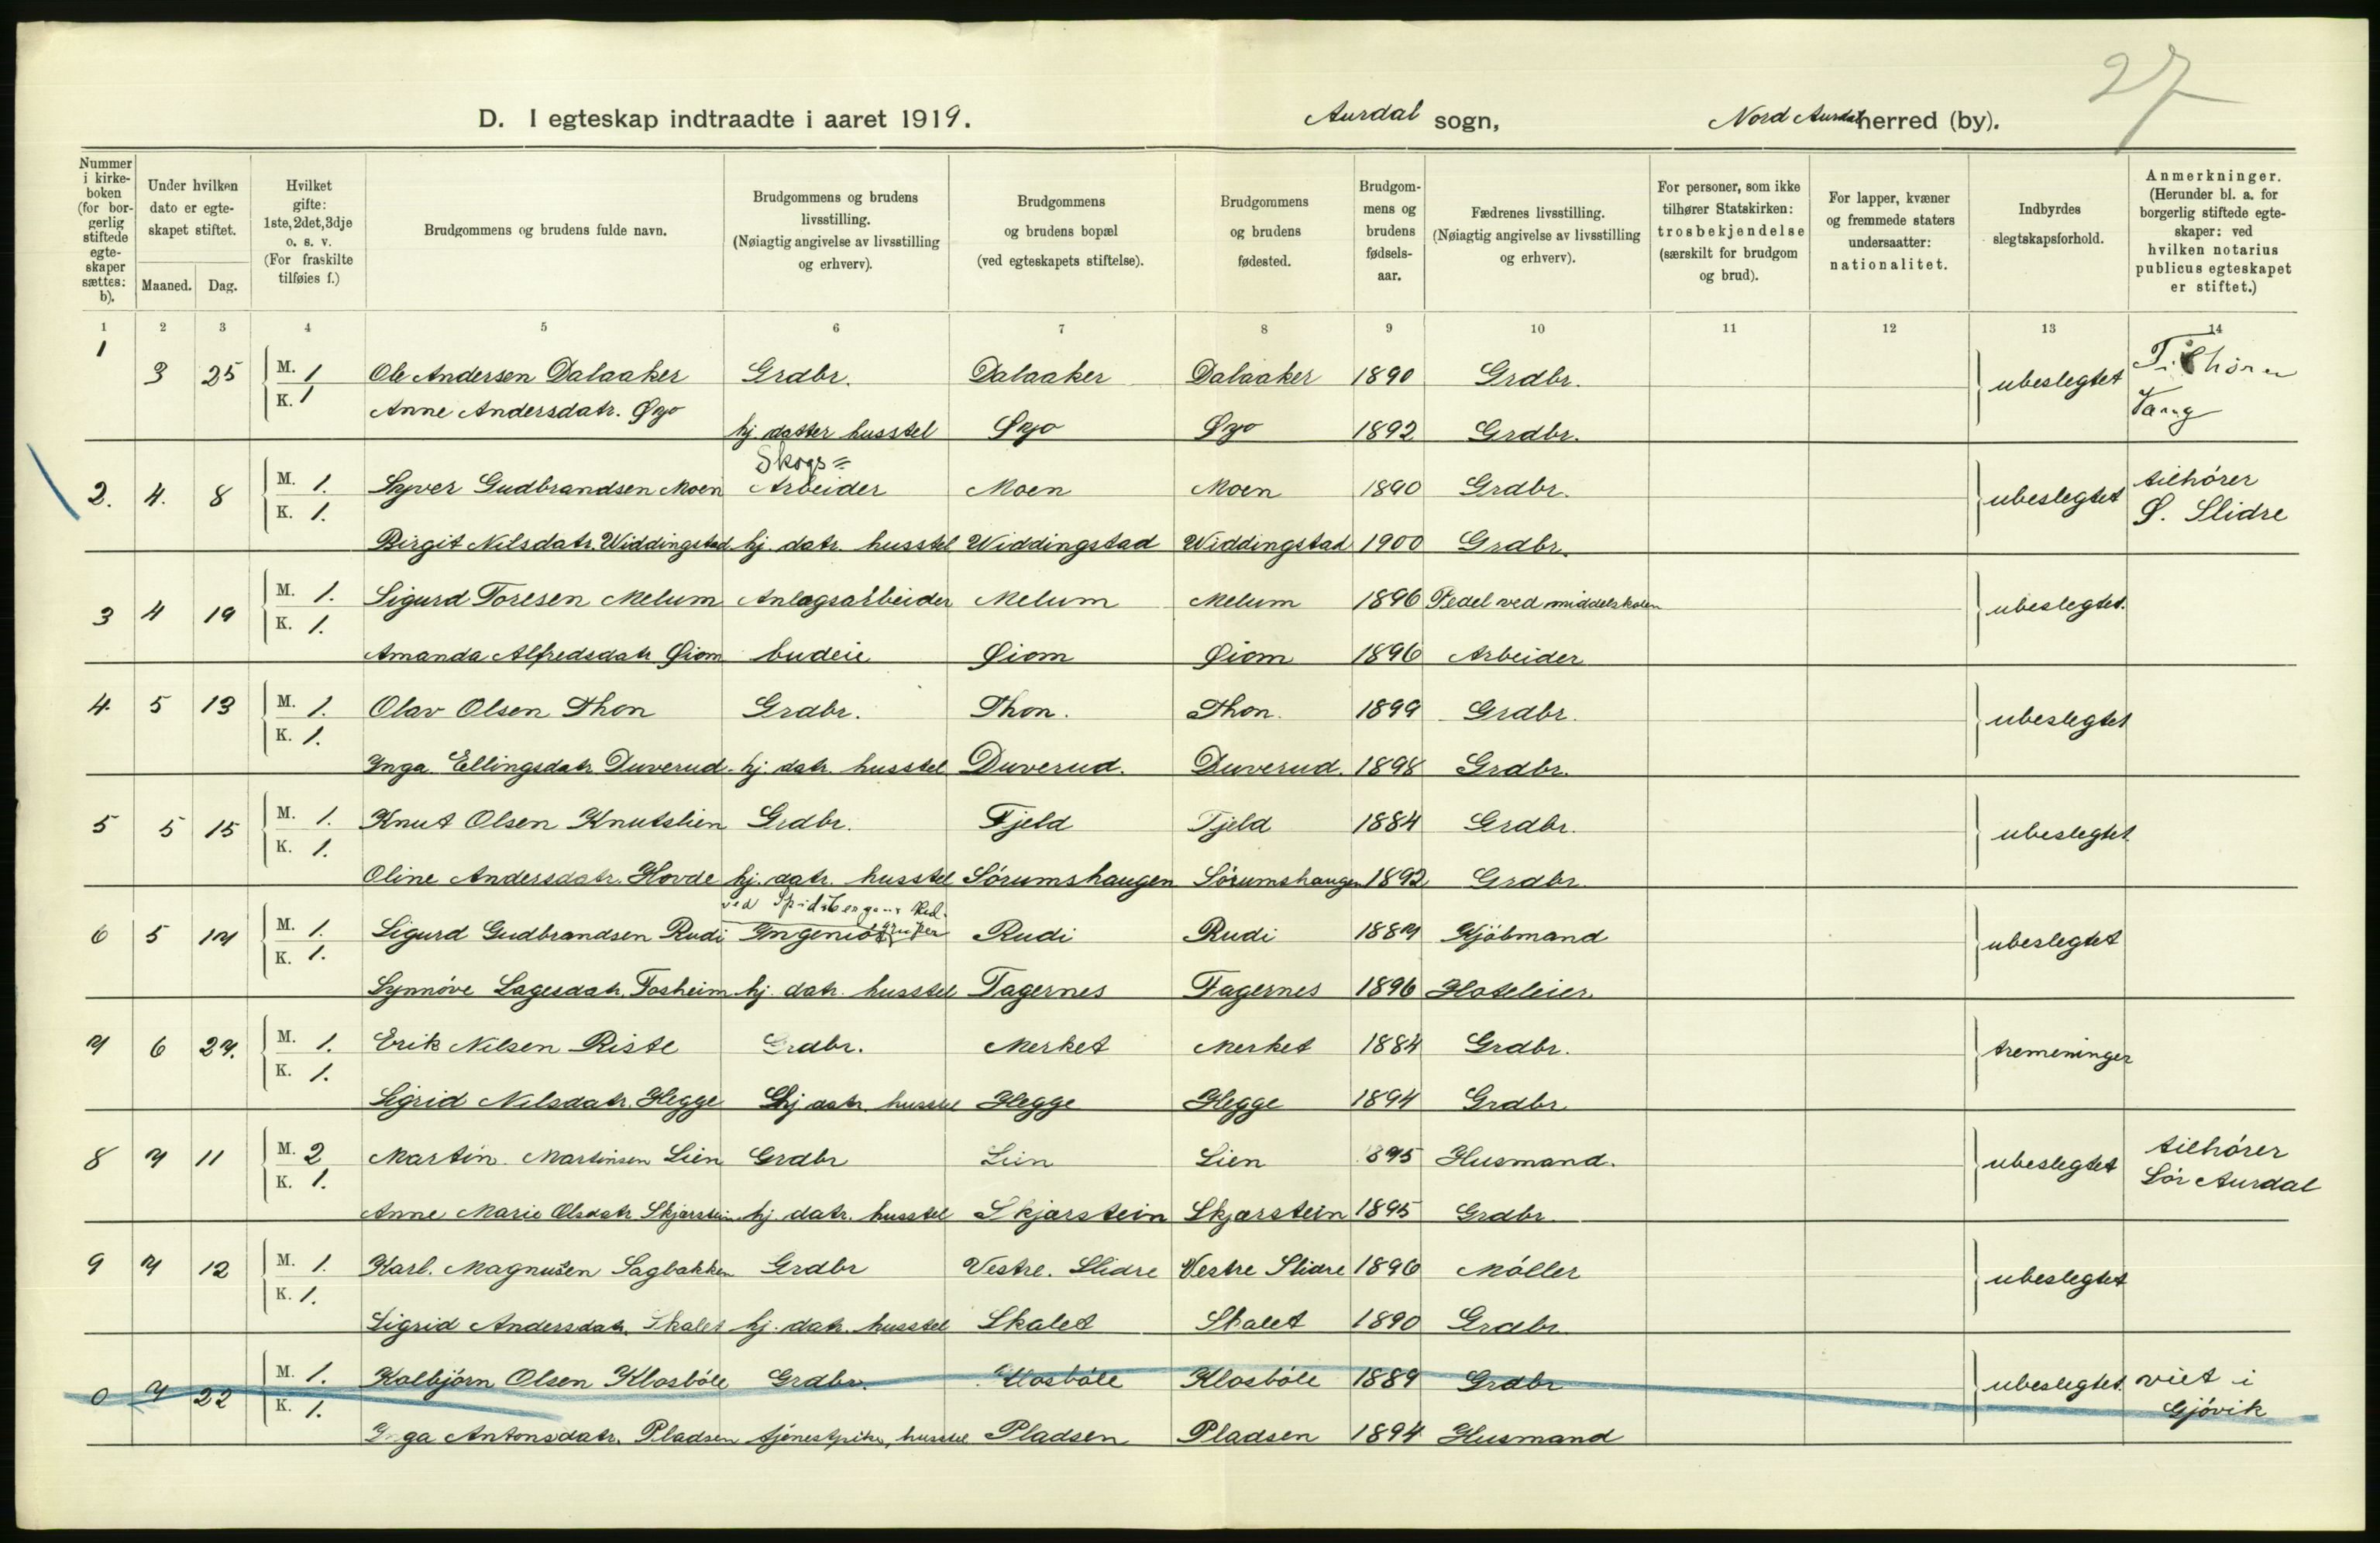 27
D. I egteskap indtraadte i aaret 1919. Aurdal sogn, Nord Aurdal herred (by).
Nummer i kirke-boken (for bor-gerlig stiftede egte-skaper sættes: b).
Under hvilken dato er egte-skapet stiftet.
Maaned. Dag.
Hvilket gifte: 1ste, 2det, 3dje o. s. v. (For fraskilte tilføies f.)
Brudgommens og brudens fulde navn.
Brudgommens og brudens livsstilling. (Nøiagtig angivelse av livsstilling og erhverv).
Brudgommens og brudens bopæl (ved egteskapets stiftelse).
Brudgommens og brudens fødested.
Brudgom-mens og brudens fødsels-aar.
Fædrenes livsstilling. (Nøiagtig angivelse av livsstilling og erhverv).
For personer, som ikke tilhører Statskirken: trosbekjendelse (særskilt for brudgom og brud).
For lapper, kvæner og fremmede staters undersaatter: nationalitet.
Indbyrdes slegtskapsforhold.
Anmerkninger. (Herunder bl. a. for borgerlig stiftede egte-skaper: ved hvilken notarius publicus egteskapet er stiftet.)
1 2 3 4 5 6 7 8 9 10 11 12 13 14
1 3 25 M. 1 Ole Andersen Dalaaker Grdbr. Dalaaker Dalaaker 1890 Grdbr. ubeslegtet Tilhører Vang
K. 1 Anne Andersdatr. Øyo hj. datter husstel Øyo Øyo 1892 Grdbr.
2. 4. 8 M. 1. Syver Gudbrandsen Moen Skogs= Arbeider Moen Moen 1890 Grdbr. ubeslegtet tilhører Ø. Slidre
K. 1. Birgit Nilsdatr. Widdingstad hj. datr. husstel Widdingstad Widdingstad 1900 Grdbr.
3 4 19 M. 1. Sigurd Toresen Melum Anlægsarbeider Melum Melum 1896 Pedel ved middelskolen ubeslegtet.
K. 1. Amanda Alfredsdatr Øiom budeie Øiom Øiom 1896 Arbeider
4. 5 13 M. 1. Olav Olsen Thon Grdbr. Thon. Thon. 1899 Grdbr. ubeslegtet
K. 1. Inga Ellingsdatr Duverud. hj. datr. husstel Duverud. Duverud. 1898 Grdbr.
5 5 15 M. 1. Knut Olsen Knutslien Grdbr. Fjeld Fjeld 1884 Grdbr. ubeslegtet
K. 1. Oline Andersdatr. Hovde hj. datr. husstel Sörumshaugen Sörumshaugen 1892 Grdbr.
6 5 17 M. 1. Sigurd Gudbrandsen Rudi ved Spidsbergens Kul. gruber Ingeniör Rudi Rudi 1887 Kjöbmand ubeslegtet
K. 1. Synnöve Lagesdatr. Fosheim hj. datr. husstel Fagernes Fagernes 1896 Hoteleier.
7 6 27. M. 1. Erik Nilsen Riste Grdbr. Merket Merket 1884 Grdbr. tremeninger
K. 1. Sigrid Nilsdatr. Hegge hj datr. husstel Hegge Hegge 1894 Grdbr.
8 7 11 M. 2 Martin Martinsen Lien Grdbr Lien Lien 1895 Husmand. ubeslegtet tilhörer Sör Aurdal
K. 1. Anne Marie Olsdatr. Skjærstein hj. datr. husstel Skjærstein Skjærstein 1895 Grdbr.
9 7 12 M. 1. Karl. Magnusen Sagbakken Grdbr Vestre. Slidre Vestre Slidre 1896 Möller ubeslegtet
K. 1. Sigrid Andersdatr. Skalet hj. datr. husstel Skalet Skalet 1890 Grdbr.
0 7 22 M. 1. Kolbjörn Olsen Klosböle Grdbr. Klosböle Klosböle 1889 Grdbr ubeslegtet. viet i Gjövik
K. 1. Inga Antonsdatr. Pladsen tjenestpike, husstel Pladsen Pladsen 1894 Husmand